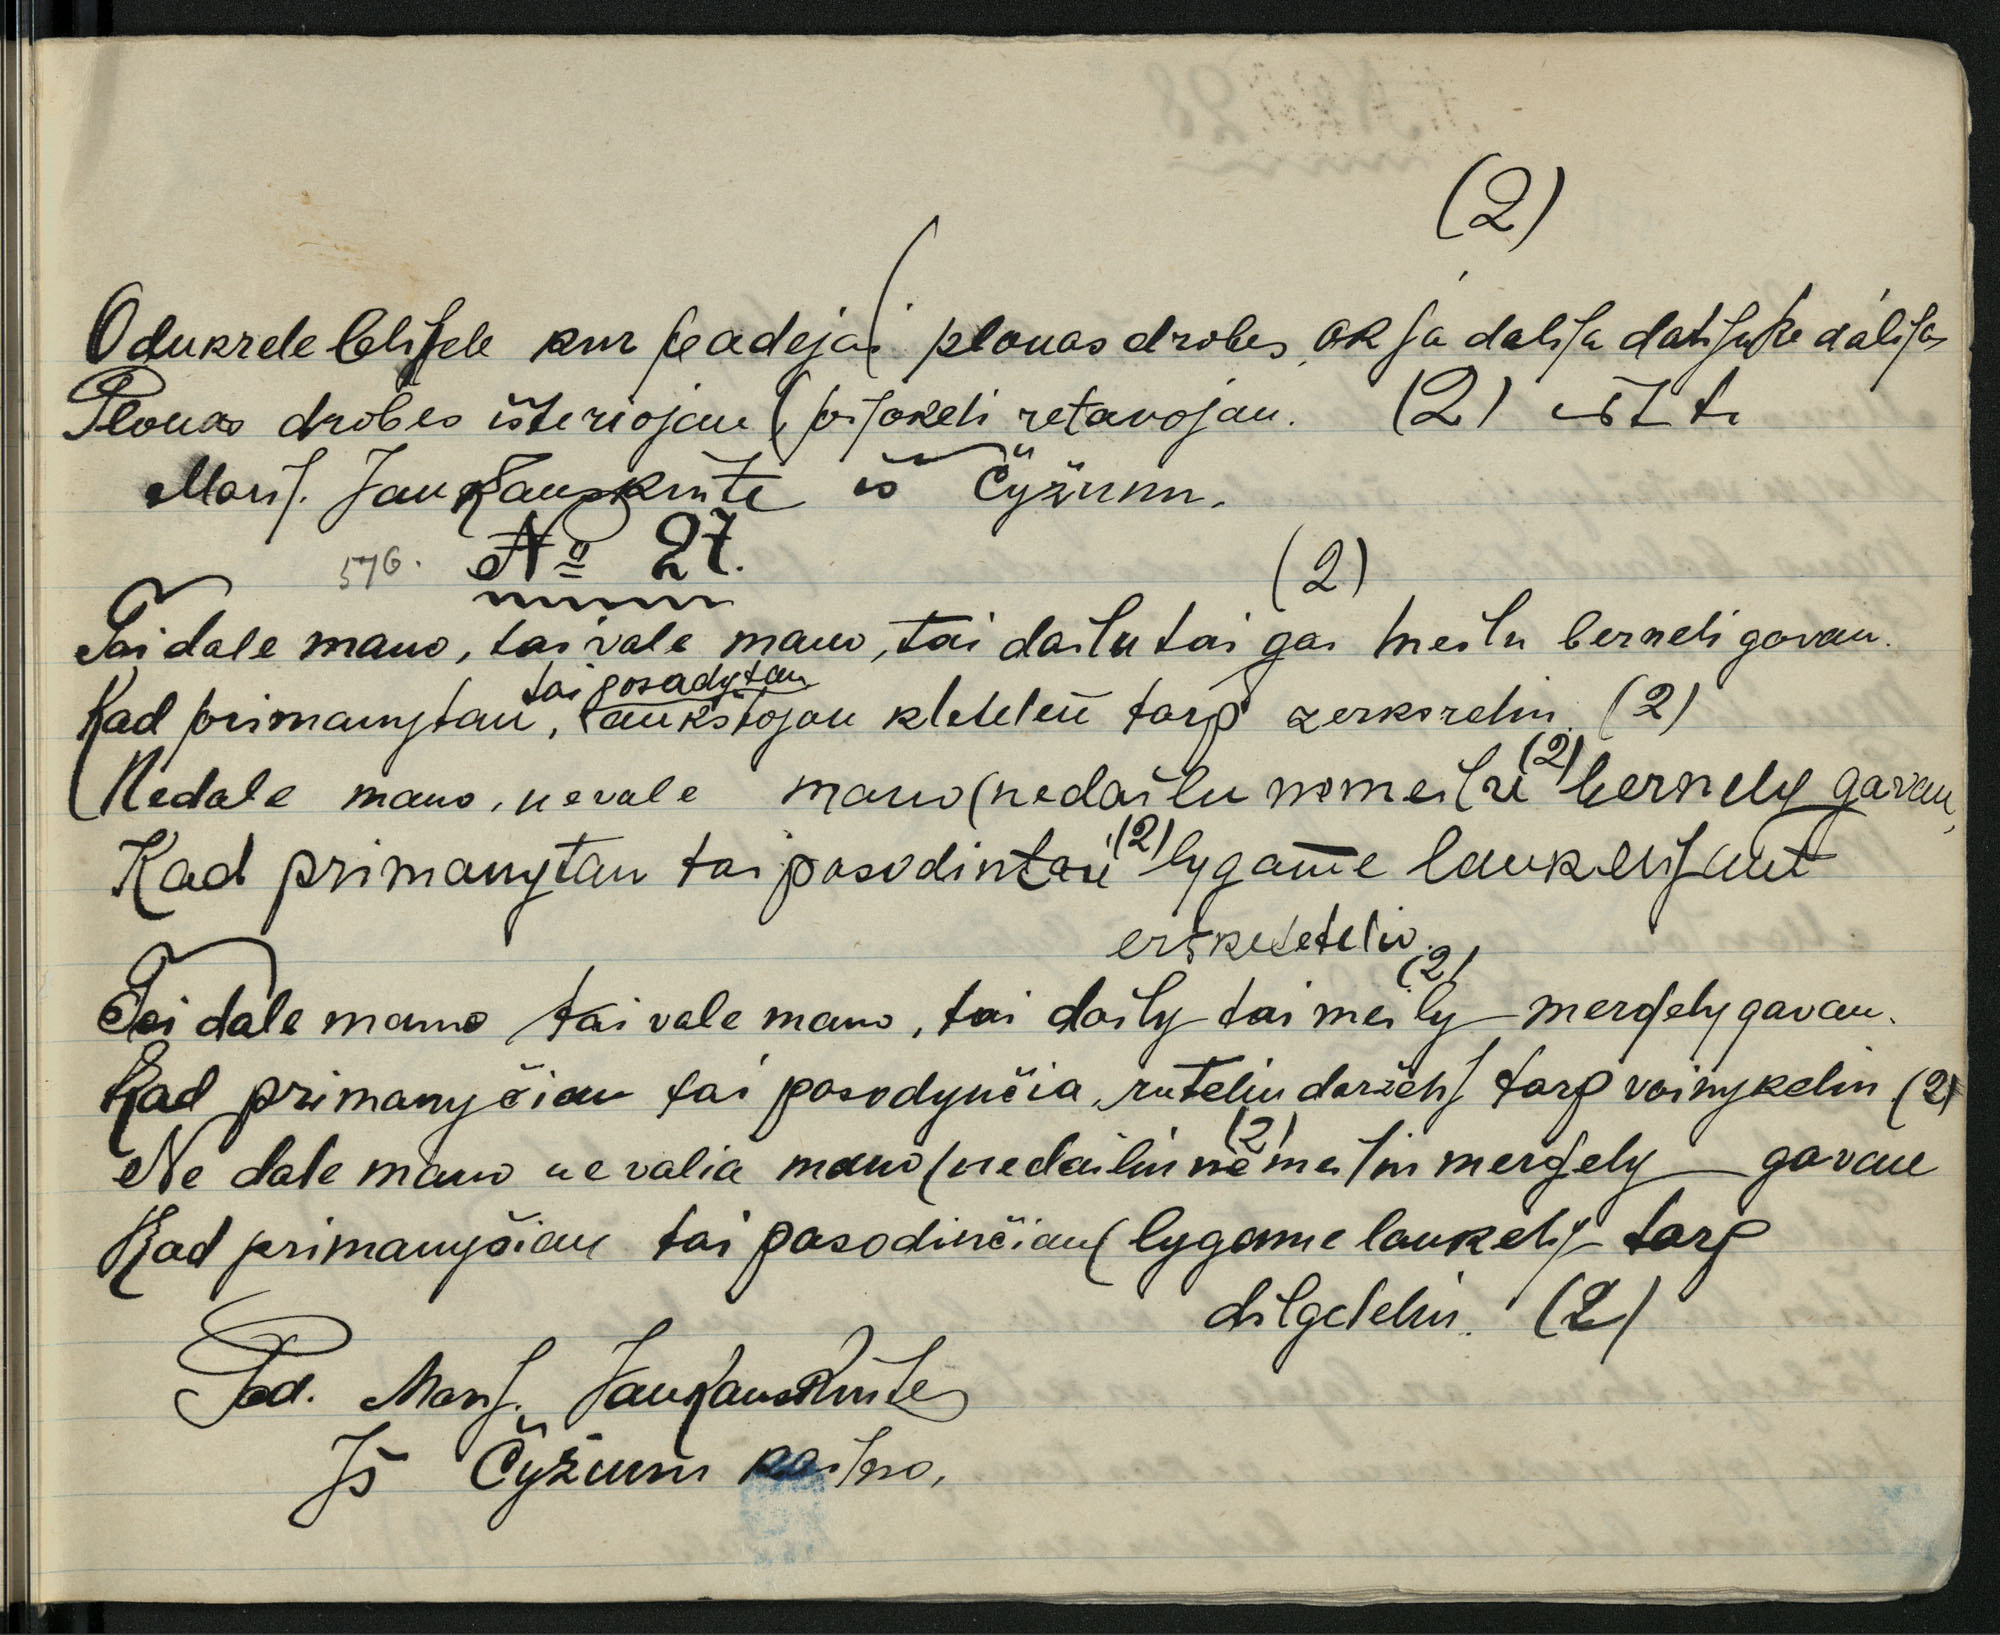 (2)
O dukrele lelijele kur padejai ( plonas drobes, ok ja dalija dalijuke dalijas
Plonas drobes išteriojau ( pijokeli retavojau. (2) ir t. t.
Marij. Jankauskiute iš Čyžiunu.
576. № 27.
(2)
Tai dale mano, tai vale mano, tai dailu tai gai meilu berneli gavau.
tai posadytau
Kad primanytau, aukštojon kletelen tarp zerkoreliu. (2)
(2)
Nedale mano, nevale mano ( nedailu nemeilu bernely gavau,
(2)
Kad primanytau tai pasodintau lygame laukelij ant
erškietelio.
(2)
Tai dale mano tai vale mano, tai daily tai meily mergely gavau.
Kad primanyčiau tai pasodynčia, ruteliu darželij tarp vainykeliu (2)
(2)
Ne dale mano ne valia mano ( nedailiu ne meiliu mergely gavau
Kad primanyčiau tai pasodinčiau ( lygame laukelij tarp
dilgeleliu. (2)
Pad. Marij. Jankauskiute
Iš Čyžiunu kaimo.